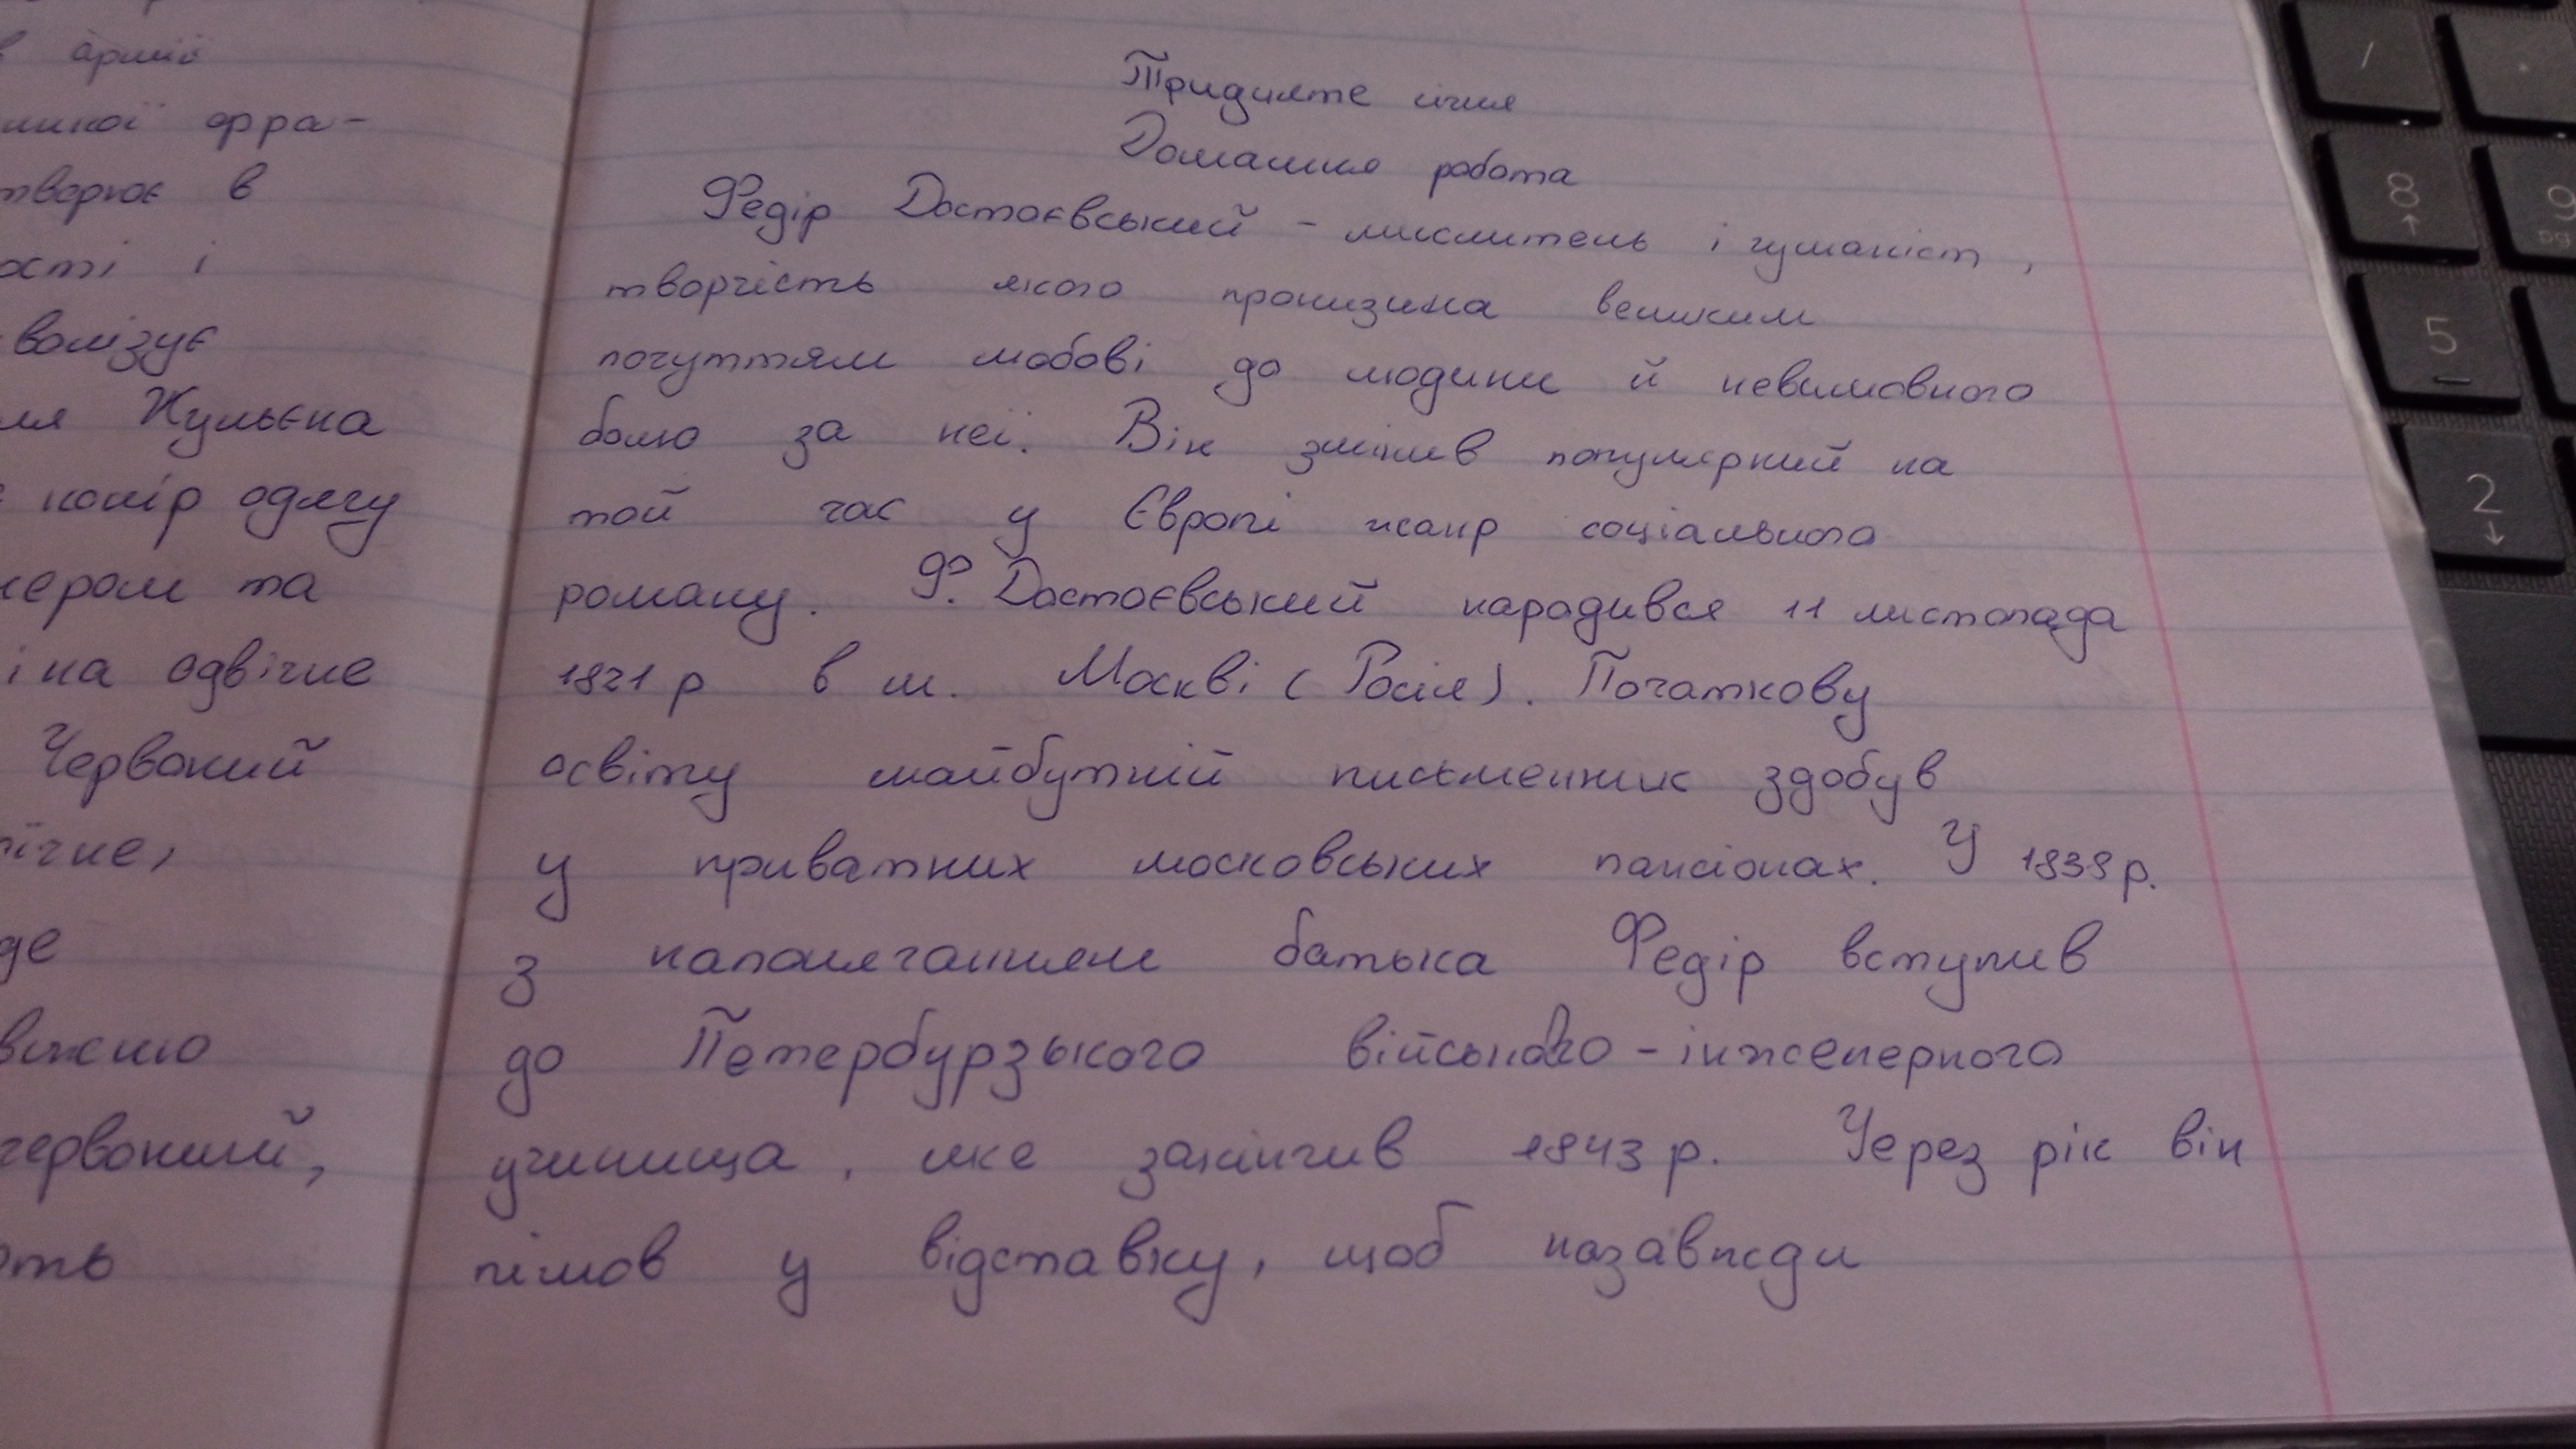 в армії
ликої фра-
творює в
ості і
волізує
ля Жульєна
колір одягу
нером та
і на одвічне
Червоний
ічне,
де
червоний,
ють
Тридцяте січня
Домашня робота
Федір Достоєвський - мислитель і гуманіст,
творчість якого пронизина великим
почуттям любові до людини й невимовного
болю за неї. Він змінив популярний на
той час у Європі жанр соціального
роману. Ф. Достоєвський народився 11 листопада
1821 р в м. Москві (Росія). Початкову
освіту майбутній письменник здобув
у приватних московських пансіонах. У 1838 р.
з наполяганням батька Федір вступив
до Петербурзького військово-інженерного
училища, яке закінчив 1843 р. Через рік він
пішов у відставку, щоб назавжди